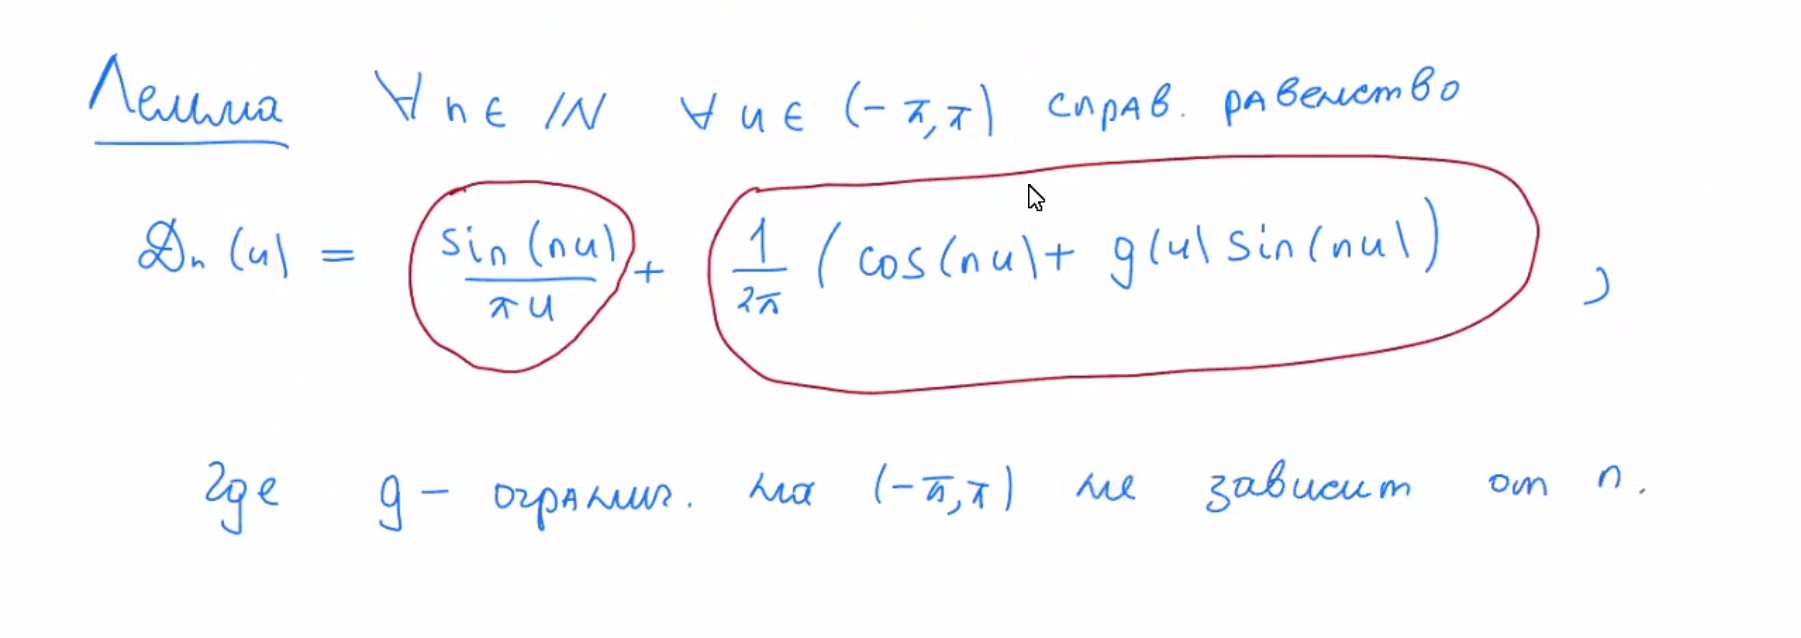 Лемма ∀ n ∈ ℕ ∀ u ∈ (-π, π) справ. равенство
Dn (u) = sin (nu) / πu + 1/2π ( cos(nu) + g(u) sin(nu) ) ,
где g – огранич. на (-π, π) не зависит от n.